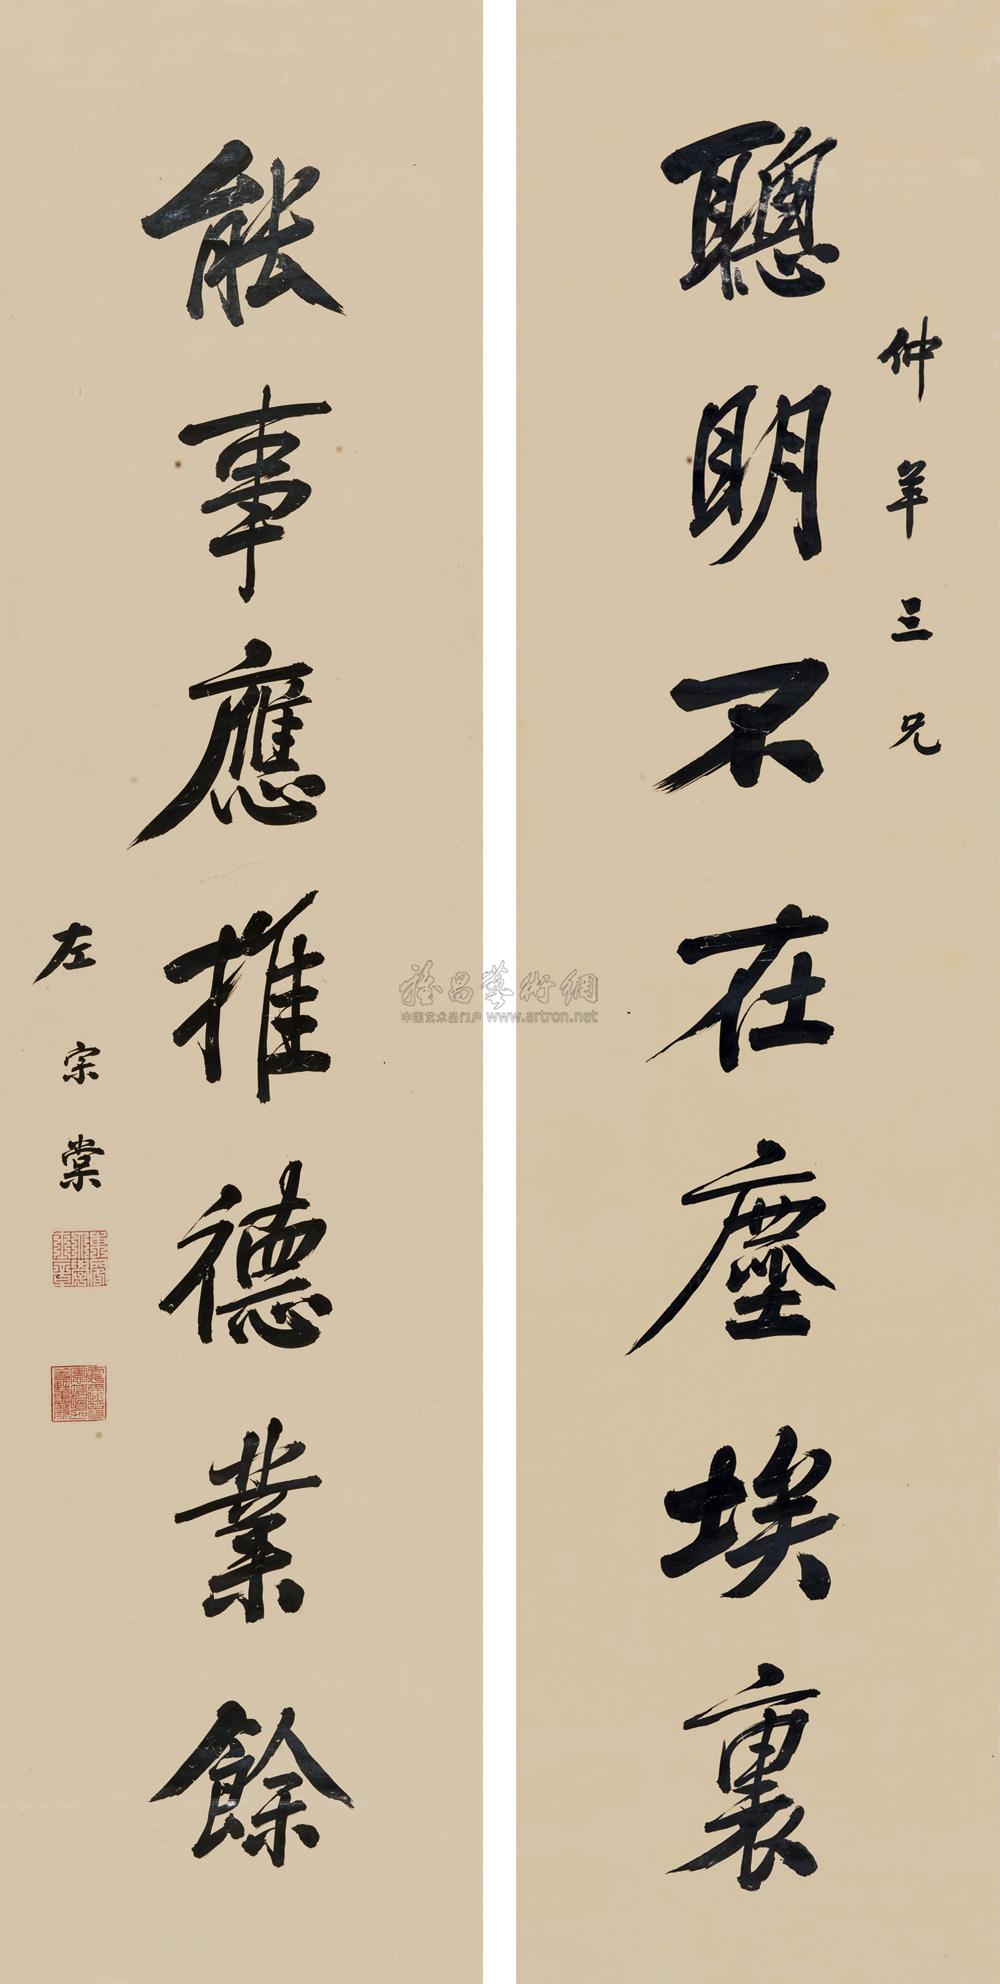 仲羊三兄
聰明不在塵埃裏
能事應推德業餘
左宗棠
雅昌藝術網
中国艺术品门户 www.artron.net